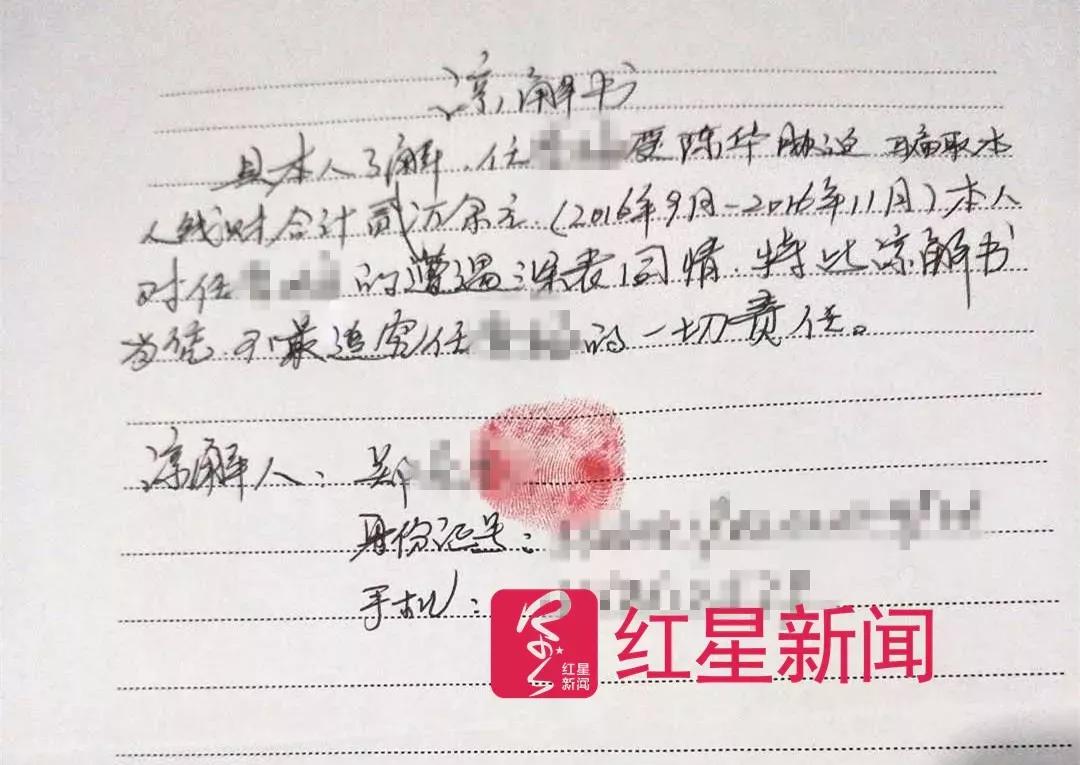 凉解书
具本人了解.任受陈华胁迫 骗取本
人钱财合计贰万余元.(2016年9月-2016年11月)本人
对任的遭遇深表同情.特此凉解书
为凭.不再追究任的一切责任。
凉解人:郑
身份证号:
手机:
红星新闻
红星
新闻